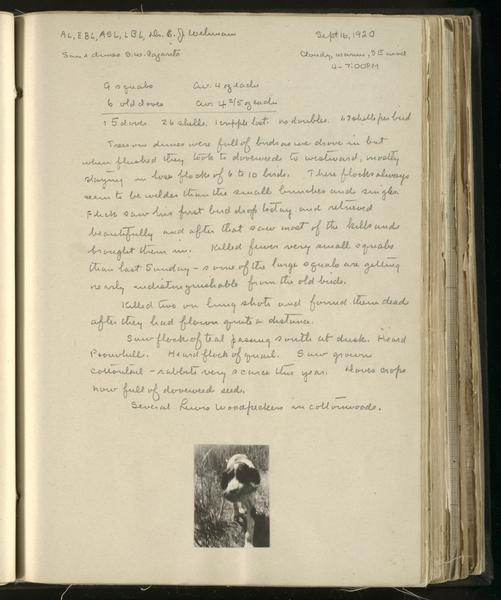 AL, EBL, ASL, LBL, Dr. E. J. Sept 16, 1920
Sand dunes S.W. Pajarito Cloudy, warm, SE wind
4-7:00 PM
9 squabs Av. 4 oz each
6 old doves Av. 4 2/5 oz each
15 doves. 26 shells. 1 cripple lost. no doubles. 1.7 shells per bird
Trees on dunes were full of birds as we drove in but
when flushed they took to doveweeds to westward, mostly
staying in loose flocks of 6 to 10 birds. These flocks always
seem to be wilder than the small bunches and singles.
Flick saw his first bird drop today and retrieved
beautifully and after that saw most of the kills and
brought them in. Killed fewer very small squabs
than last Sunday - some of the large squabs are getting
nearly indistinguishable from the old birds.
Killed two on long shots and found them dead
after they had flown quite a distance.
Saw flock of teal passing south at dusk. Heard
Poorwills. Heard flock of quail. Saw grown
cottontail - rabbits very scarce this year. Doves crops
now full of doveweed seed.
Several Lewis Woodpeckers in cottonwoods.